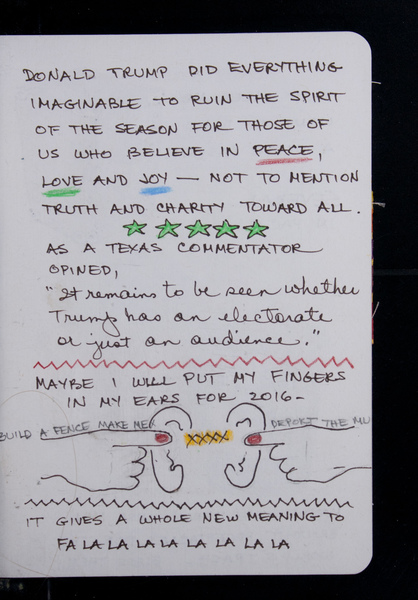 DONALD TRUMP DID EVERYTHING
IMAGINABLE TO RUIN THE SPIRIT
OF THE SEASON FOR THOSE OF
US WHO BELIEVE IN PEACE,
LOVE AND JOY — NOT TO MENTION
TRUTH AND CHARITY TOWARD ALL.
AS A TEXAS COMMENTATOR
OPINED,
"It remains to be seen whether
Trump has an electorate
or just an audience."
MAYBE I WILL PUT MY FINGERS
IN MY EARS FOR 2016-
BUILD A FENCE MAKE MEX
DEPORT THE MU
XXXX
IT GIVES A WHOLE NEW MEANING TO
FA LA LA LA LA LA LA LA LA